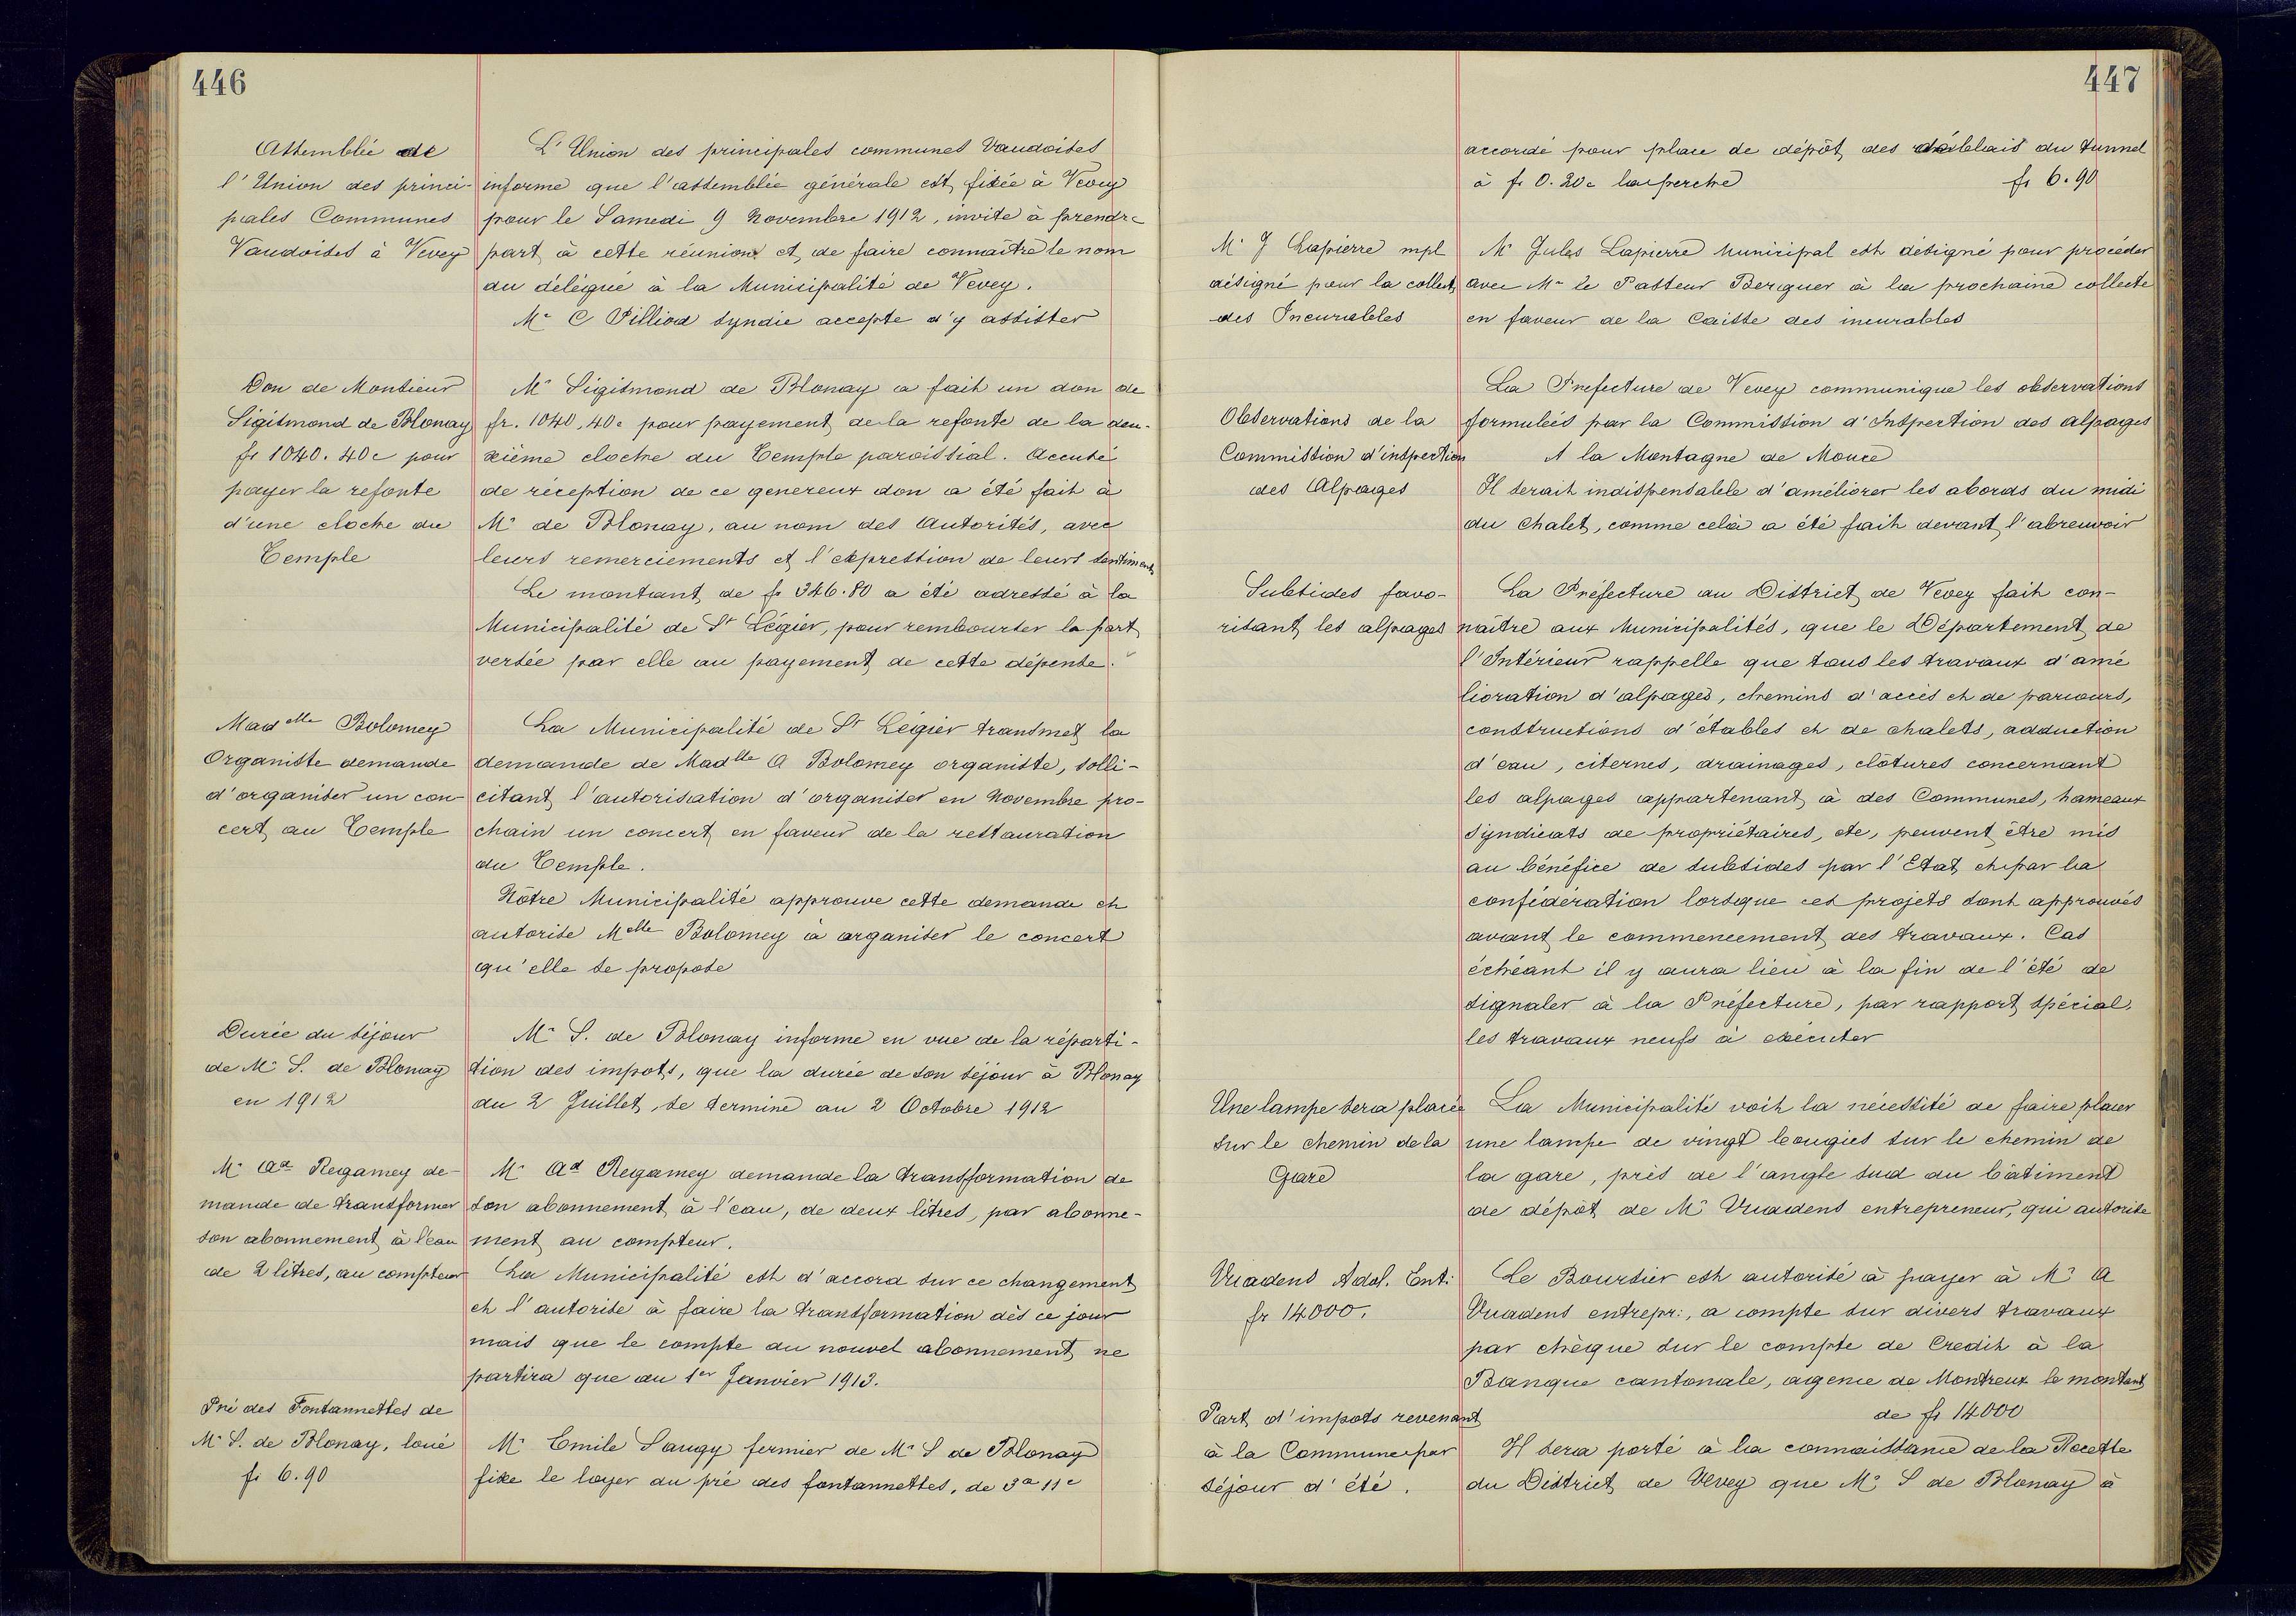 446
Assemblée de
l'Union des princi-
pales Communes
Vaudoises à Vevey
L'Union des principales communes Vaudoises
informe que l'assemblée générale est fixée à Vevey
pour le Samedi 9 Novembre 1912, invite à prendre
part à cette réunion et de faire connaître le nom
du délégué à la Municipalité de Vevey.
Mr C Pilliod syndic accepte d'y assister
Don de Monsieur
Sigismond de Blonay
fr 1040.40c pour
payer la refonte
d'une cloche du
Temple
Mr Sigismond de Blonay a fait un don de
fr. 1040,40c pour payement de la refonte de la deu-
xième cloche du Temple paroissial. Accusé
de réception de ce genereux don a été fait à
Mr de Blonay, au nom des Autorités, avec
leurs remerciements et l'expression de leurs sentiments
Le montant de fr 346.80 a été adressé à la
Municipalité de St Légier, pour rembourser la part
versée par elle au payement de cette dépense.
Madelle Bolomey
Organiste demande
d'organiser un con-
cert au Temple
La Municipalité de St Légier transmet la
demande de Madlle A Bolomey organiste, solli-
citant l'autorisation d'organiser en Novembre pro-
chain un concert en faveur de la restauration
du Temple.
Nôtre Municipalité approuve cette demande et
autorise Melle Bolomey à organiser le concert
qu'elle se propose
Durée du séjour
de Mr S. de Blonay
en 1912
Mr S. de Blonay informe en vue de la réparti-
tion des impots, que la durée de son séjour à Blonay
du 2 Juillet, se termine au 2 Octobre 1912
Mr Ad Regamey de-
mande de transformer
son abonnement à l'eau
de 2 litres, au compteur
Mr Ad Regamey demande la transformation de
son abonnement à l'eau, de deux litres, par abonne-
ment au compteur.
La Municipalité est d'accord sur ce changement
et l'autorise à faire la transformation dès ce jour
mais que le compte du nouvel abonnement ne
partira que du 1er Janvier 1913.
Pré des Fontannettes de
Mr S. de Blonay, loué
fr 6.90
Mr Emile Saugy fermier de Mr S de Blonay
fixe le loyer du pré des fontannettes, de 3a 11c
447
accordé pour place de dépôt des déblais du tunnel
à fr 0.20c la perche fr 6.90
Mr J Lapierre mpl
désigné pour la collecte
des Incurables
Mr Jules Lapierre Municipal est désigné pour procéder
avec Mr le Pasteur Berguer à la prochaine collecte
en faveur de la Caisse des incurables
Observations de la
Commission d'inspection
des Alpages
La Préfecture de Vevey communique les observations
formulées par la Commission d'Inspection des alpages
A la Montagne de Mouce
Il serait indispensable d'améliorer les abords du midi
du Chalet, comme celà a été fait devant l'abreuvoir
Subsides favo-
risant les alpages
La Préfecture du District de Vevey fait con-
naître aux Municipalités, que le Département de
l'Intérieur rappelle que tous les travaux d'amé
lioration d'alpages, chemins d'accès et de parcours,
constructions d'étables et de chalets, adduction
d'eau, citernes, drainages, clôtures concernant
les alpages appartenant à des Communes, hameaux
Syndicats de propriétaires, etc, peuvent être mis
au bénéfice de subsides par l'Etat et par la
confédération lorsque ces projets sont approuvés
avant le commencement des travaux. Cas
échéant il y aura lieu à la fin de l'été de
signaler à la Préfecture, par rapport spécial,
les travaux neufs à exécuter
Une lampe sera placée
sur le chemin de la
Gare
La Municipalité voit la nécessité de faire placer
une lampe de vingt bougies sur le chemin de
la gare, près de l'angle sud du bâtiment
de dépôt de Mr Vuadens entrepreneur, qui autorise
Vuadens Adol. Ent:
fr 14000.
Le Boursier est autorisé à payer à Mr A
Vuadens entrepr:, a compte sur divers travaux
par chèque sur le compte de Credit à la
Banque cantonale, agence de Montreux le montant
de fr 14000
Part d'impots revenant
à la Commune par
séjour d'été.
Il sera porté à la connaissance de la Recette
du District de Vevey que Mr S de Blonay à